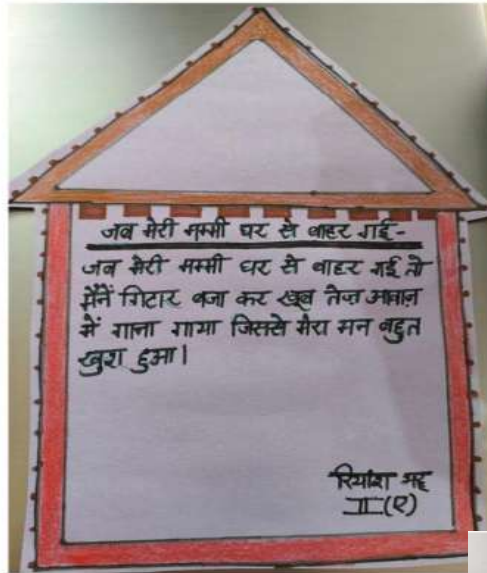 जब मेरी मम्मी घर से बाहर गई-
जब मेरी मम्मी घर से बाहर गई तो
मैंनें गिटार बजा कर खूब तेज़ आवाज़
में गाना गाया जिससे मेरा मन बहुत
खुश हुआ।
रियांश भट्ट
II(ए)